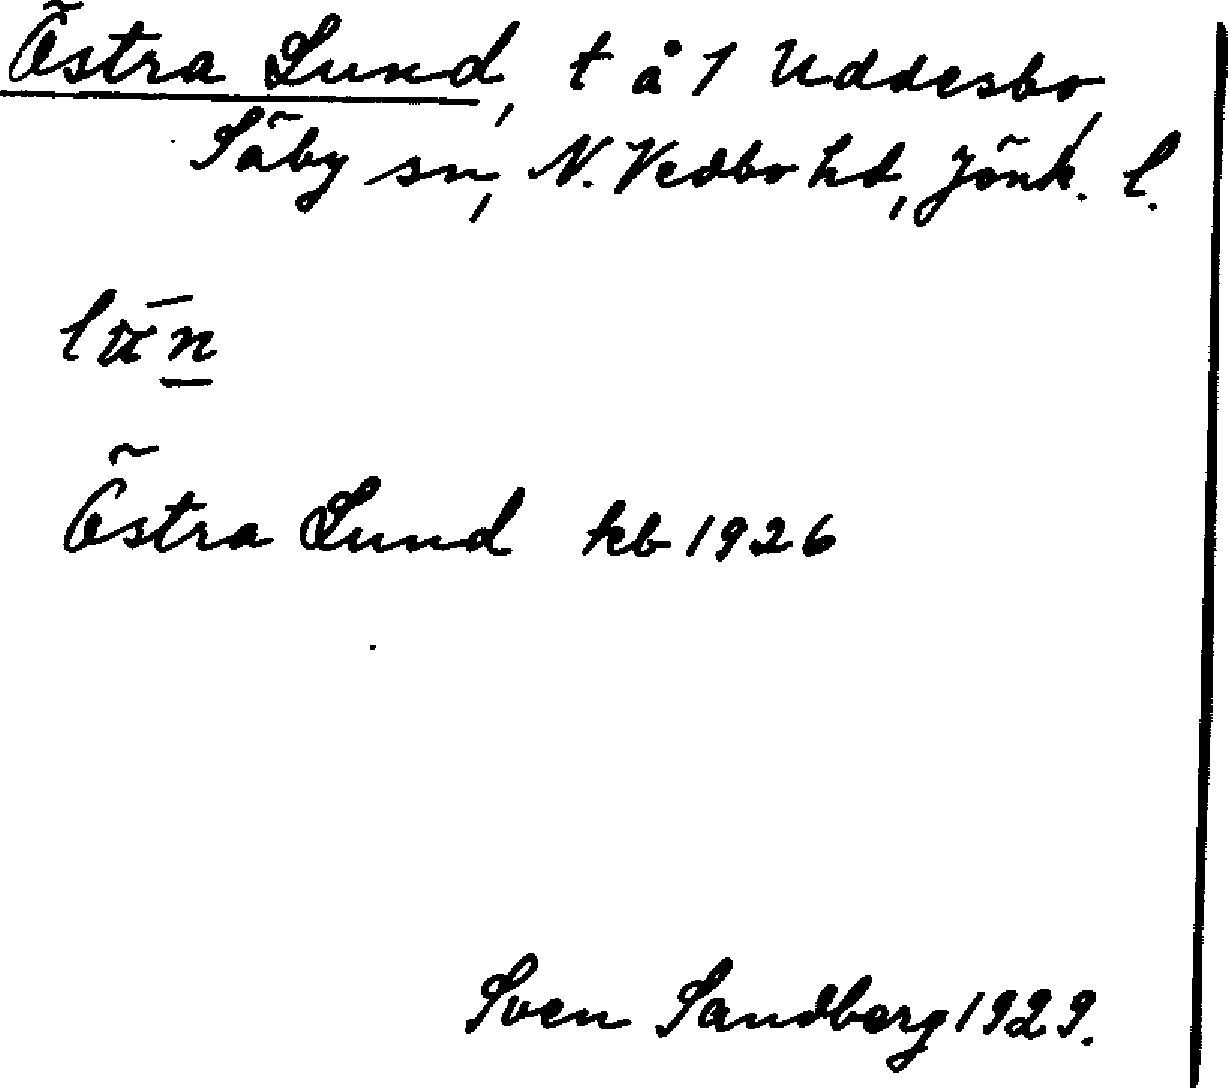 Östra Lund, t å 1 Uddesbo,
Säby sn, N. Vedbo hd, Jönk. l.
Östra Lund kb 1926
Sven Sandberg 1929.